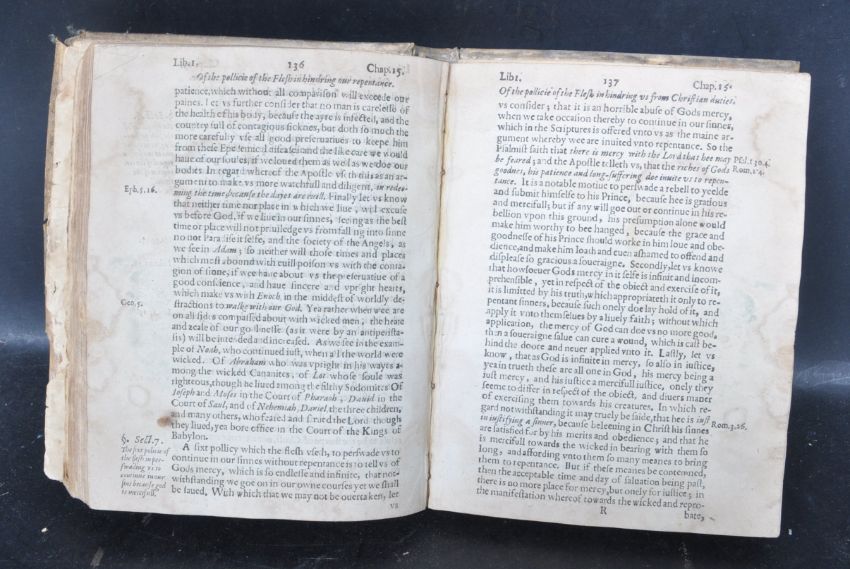 Lib. 1. 136 Chap. 15.
Of the pollicie of the Flesh in hindring our repentance.
patience, which without all comparison will exceede our
paines. Let vs further consider that no man is carelesse of
the health of his body, because the ayre is infected, and the
country full of contagious sicknes, but doth so much the
more carefully vse all good preseruatiues to keepe him
from these diseases and the like care we would
haue of our soules, if we loued them as well as we doe our
bodies. In regard whereof the Apostle vseth this as an ar-
gument to make vs more watchfull and diligent, in redee-
Eph. 5. 16.
ming the time because the dayes are euill. Finally let vs know
that neither time nor place in which we liue, will excuse
vs before God, if we liue in our sinnes, seeing as the best
time or place will not priuiledge vs from falling into sinne
no not Paradise it selfe, and the society of the Angels, as
we see in Adam; so neither will those times and places
which most abound with euill poison vs with the conta-
gion of sinne, if wee haue about vs the preseruatiue of a
good conscience, and haue sincere and vpright hearts,
Gen. 5.
which make vs with Enoch, in the middest of worldly de-
stractions to walke with our God. Yea rather when wee are
on all sides compassed about with wicked men, the heate
and zeale of our godlinesse (as it were by an antiperista-
sis) will be intended and increased. As we see in the exam-
ple of Noah, who continued iust, when all the world were
wicked. Of Abraham who was vpright in his wayes a-
mong the wicked Cananites, of Lot whose soule was
righteous, though he liued among the filthy Sodomites. Of
Ioseph and Moses in the Court of Pharaoh, Dauid in the
Court of Saul, and of Nehemiah, Daniel, the three children,
and many others, who feared and serued the Lord though
they liued, yea bore office in the Court of the Kings of
Babylon.
§. Sect. 7.
The sixt policie of
the flesh in per-
swading vs to
continue in our
sins because god
is mercifull.
A sixt pollicy which the flesh vseth, to perswade vs to
continue in our sinnes without repentance is to tell vs of
Gods mercy, which is so endlesse and infinite, that not-
withstanding we goe on in our owne courses yet we shall
be saued. With which that we may not be ouertaken, let
vs
Lib 1. 137 Chap. 15.
Of the pollicie of the Flesh in hindring vs from Christian duties.
vs consider; that it is an horrible abuse of Gods mercy,
when we take occasion thereby to continue in our sinnes,
which in the Scriptures is offered vnto vs as the maine ar-
gument whereby wee are inuited vnto repentance. So the
Psalmist saith that there is mercy with the Lord that hee may
Psal. 130. 4.
be feared; and the Apostle telleth vs, that the riches of Gods
Rom. 2. 4.
goodnes, his patience and long-suffering doe inuite vs to repen-
tance. It is a notable motiue to perswade a rebell to yeelde
and submit himselfe to his Prince, because hee is gratious
and mercifull; but if any will goe out or continue in his re-
bellion vpon this ground, his presumption alone would
make him worthy to bee hanged, because the grace and
goodnesse of his Prince should worke in him loue and obe-
dience, and make him loath and euen ashamed to offend and
displease so gracious a soueraigne. Secondly, let vs knowe
that howsoeuer Gods mercy in it selfe is infinit and incom-
prehensible, yet in respect of the obiect and exercise of it,
it is limited by his truth, which appropriateth it only to re-
pentant sinners, because such onely doe lay hold of it, and
apply it vnto themselues by a liuely faith; without which
application, the mercy of God can doe vs no more good,
than a soueraigne salue can cure a wound, which is cast be-
hind the doore and neuer applied vnto it. Lastly, let vs
know, that as God is infinite in mercy, so also in iustice,
yea in trueth these are all one in God, his mercy being a
iust mercy, and his iustice a mercifull iustice, onely they
seeme to differ in respect of the obiect, and diuers maner
of exercising them towards his creatures. In which re-
gard notwithstanding it may truely be saide, that hee is iust
in iustifying a sinner, because beleeuing in Christ his sinnes
Rom. 3. 26.
are satisfied for by his merits and obedience; and that he
is mercifull towards the wicked in bearing with them so
long, and affording vnto them so many meanes to bring
them to repentance. But if these meanes be contemned,
then the acceptable time and day of saluation being past,
there is no more place for mercy, but onely for iustice; in
the manifestation whereof towards the wicked and repro-
R bate,